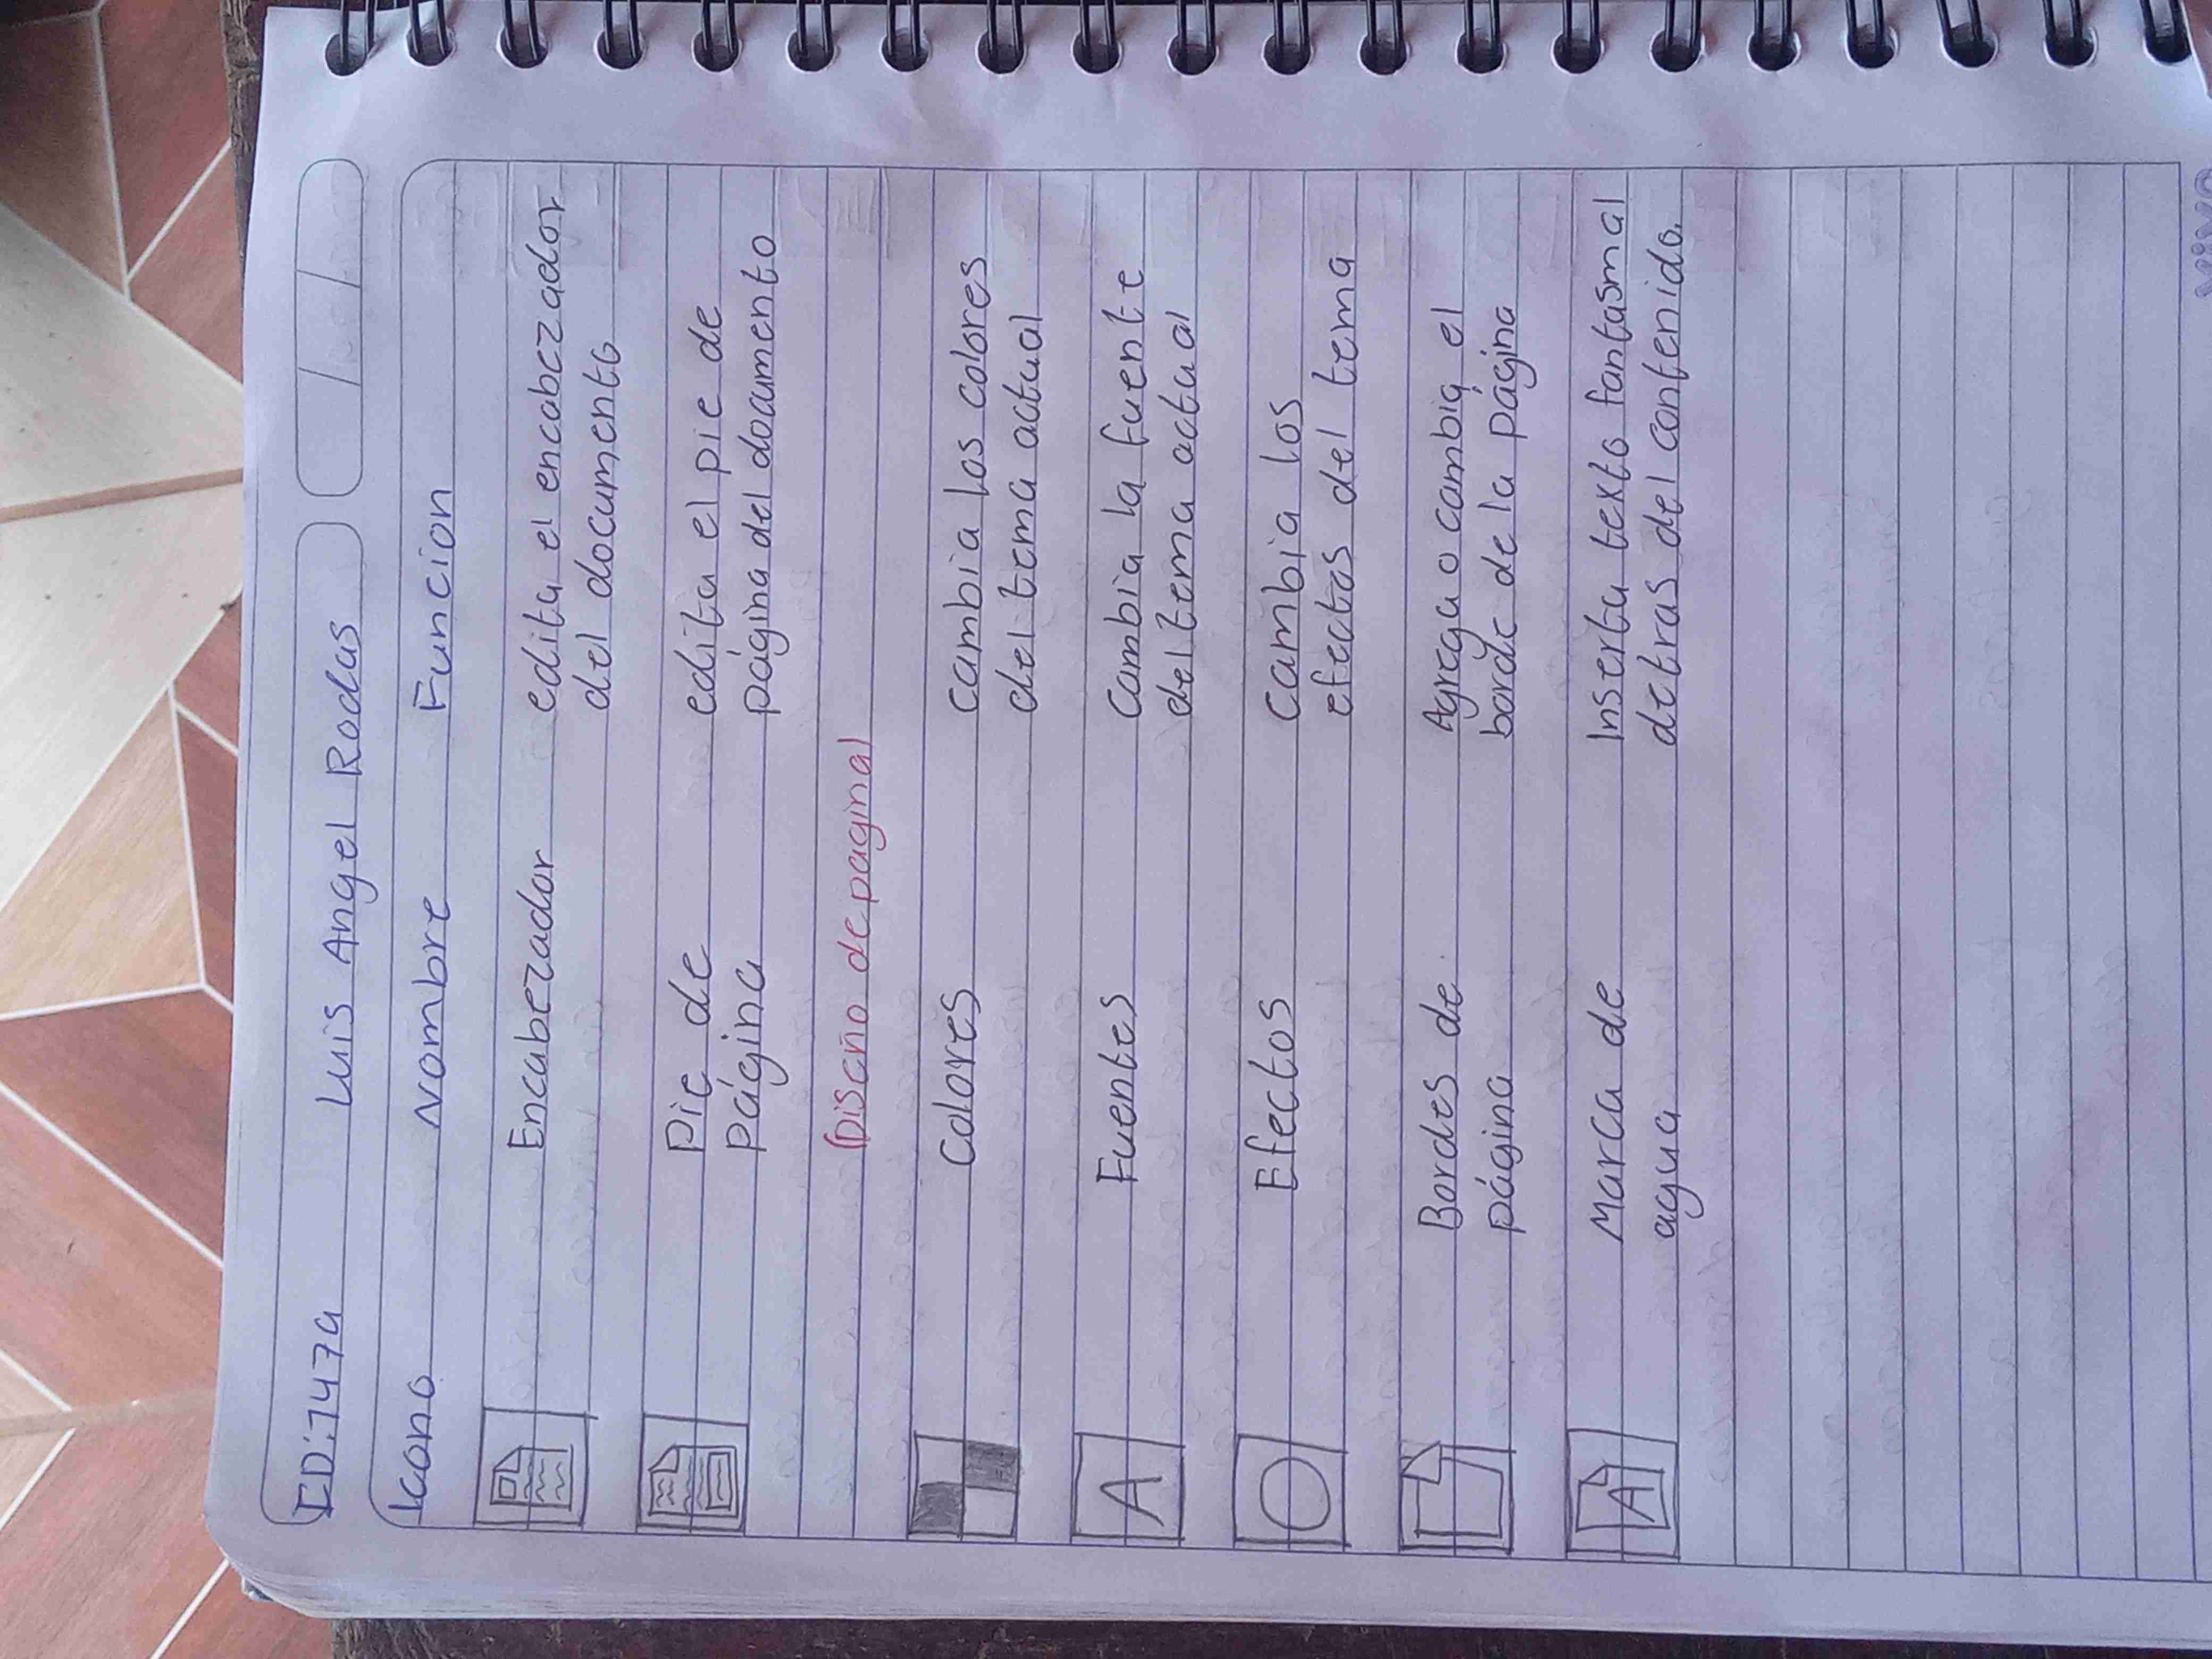 ID: 7479 Luis Angel Rodas
Icono Nombre Funcion
Encabezador edita el encabezador
del documento
Pie de edita el pie de
página página del documento
(Diseño de pagina)
Colores Cambia los colores
del tema actual
A Fuentes Cambia la fuente
del tema actual
Efectos Cambia los
efectos del tema
Bordes de Agrega o cambia el
página borde de la página
A Marca de Inserta texto fantasmal
agua detras del contenido.